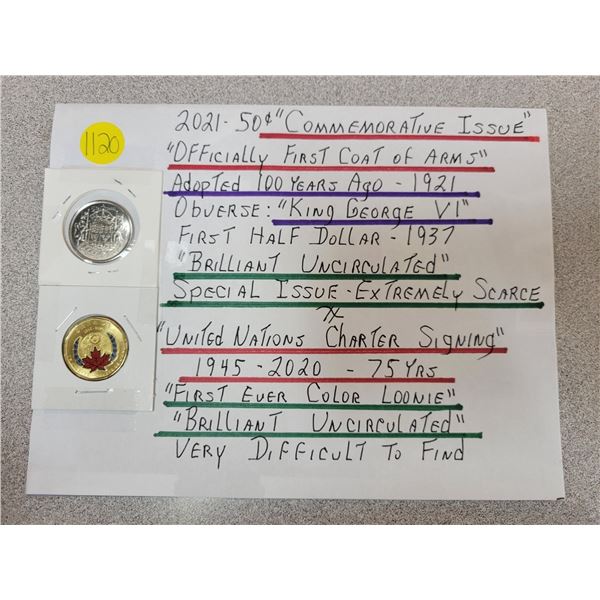 1120
2021-50¢ "COMMEMORATIVE ISSUE"
"OFFICIALLY FIRST COAT OF ARMS"
ADOPTED 100 YEARS AGO - 1921
OBVERSE: "KING GEORGE VI"
FIRST HALF DOLLAR - 1937
"BRILLIANT UNCIRCULATED"
SPECIAL ISSUE - EXTREMELY SCARCE
"UNITED NATIONS CHARTER SIGNING"
1945 - 2020 - 75 YRS
"FIRST EVER COLOR LOONIE"
"BRILLIANT UNCIRCULATED"
VERY DIFFICULT TO FIND